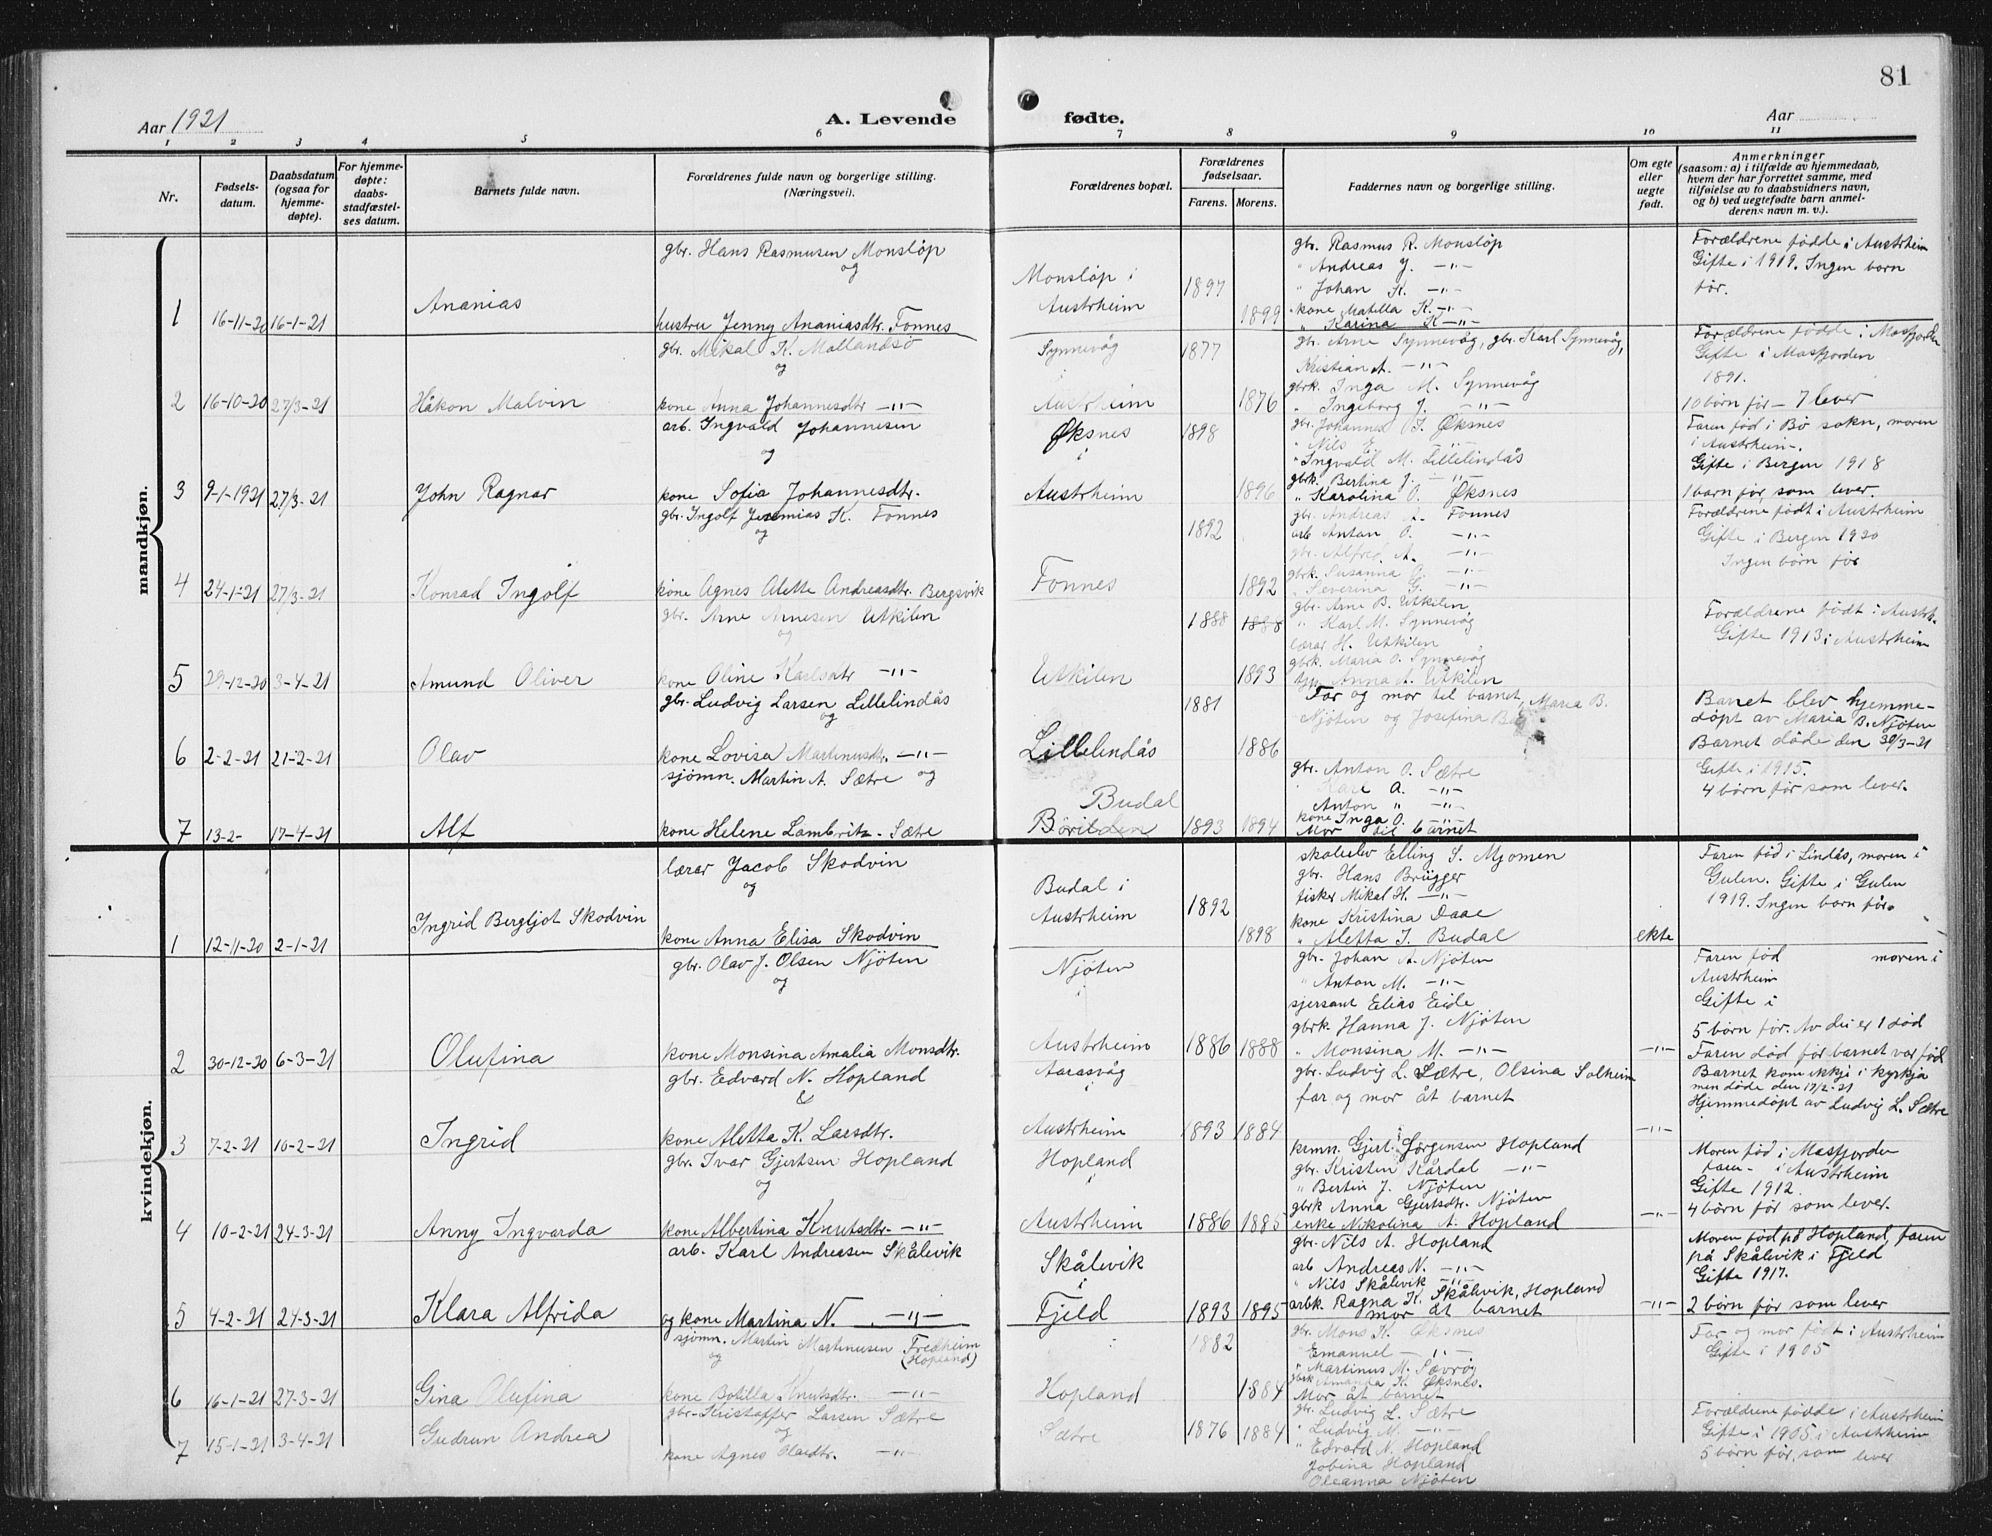 81
Aar 1921
A. Levende fødte.
Aar
1 2 3 4 5 6 7 8 9 10 11
Nr.
Fødsels-
datum.
Daabsdatum
(ogsaa for
hjemme-
døpte).
For hjemme-
døpte:
daabs-
stadfæstel-
ses datum.
Barnets fulde navn.
Forældrenes fulde navn og borgerlige stilling.
(Næringsvei).
Forældrenes bopæl.
Forældrenes
fødselsaar.
Farens. Morens.
Faddernes navn og borgerlige stilling.
Om egte
eller
uegte
født.
Anmerkninger
(saasom: a) i tilfælde av hjemmedaab,
hvem der har forrettet samme, med
tilføielse av to daabsvidners navn,
og b) ved uegtefødte barn anmel-
derens navn m. v.).
mandkjøn.
1 16-11-20 16-1-21
Ananias
gbr. Hans Rasmusen Monsløp
og
hustru Jenny Ananiasdtr. Fonnes
Monsløp i
Austrheim
1897 1899
gbr. Rasmus R. Monsløp
" Andreas J. -"-
" Johan K. -"-
kone Matilla K. -"-
" Karina K -"-
Forældrene fødde i Austrheim
Gifte i 1919. Ingen born
før.
2 16-10-20 27/3-21
Håkon Malvin
gbr. Mikal K. Mollandsø
og
kone Anna Johannesdtr -"-
Synnevåg
i
Austrheim
1877 1876
gbr. Arne Synnevåg, gbr. Karl Synnevåg,
Kristian A. -"-
gbrk. Inga M. Synnevåg
" Ingeborg J. -"-
Forældrene fødde i Masfjorden
Gifte i Masfjorden
1891.
10 børn før - 7 lever
3 9-1-1921 27/3-21
John Ragnar
arb. Ingvald Johannesen
og
kone Sofia Johannesdtr.
Øksnes
i
Austrheim
1898 1896
gbr. Johannes O. Øksnes
" Nils E. -"-
" Ingvald M. Lillelindås
gbrk. Bertina J. -"-
" Karolina O. Øksnes
Faren fød i Bø sokn, moren
i Austrheim.
Gifte i Bergen 1918
1 barn før, som lever.
4 24-1-21 27/3-21
Konrad Ingolf
gbr. Ingolf Jeremias K. Fonnes
og
kone Agnes Alette Andreasdtr. Bergsvik
Fonnes
1892 1892
gbr. Andreas A. Fonnes
arb. Anton O. -"-
gbr. Alfred A. -"-
gbrk. Susanna O. -"-
" Severina G. -"-
Forældrene født i Austrheim
Gifte i Bergen 1920
Ingen børn før
5 29-12-20 3-4-21
Amund Oliver
gbr. Arne Arnesen Utkilen
og
kone Oline Karlsdtr -"-
Utkilen
1888 1888
1893
gbr. Arne B. Utkilen
" Karl M. Synnevåg
lærar H. Utkilen
gbrk. Maria O. Synnevåg
Anna A. Utkilen
Forældrene født i Austrh.
Gifte 1913 i Austrheim
6 2-2-21 21-2-21
Olav
gbr. Ludvig Larsen Lillelindås
og
kone Lovisa Martinusdtr. -"-
Lillelindås
1881 1886
Far og mor til barnet, Maria B.
Njøten og Josefina
Barnet blev hjemme-
døpt av Maria B. Njøten
Barnet døde den 30/3-21
7 13-2- 17-4-21
Alf
sjömn. Martin A. Sætre og
kone Helene Lambritz. Sætre
Budal
Børilden
1893 1894
gbr. Anton O. Sætre
" A. -"-
Anton " -"-
kone Inga O. -"-
Mor til barnet
Gifte i 1915.
4 børn før som lever.
kvindekjøn.
1 12-11-20 2-1-21
Ingrid Bergljot Skodvin
lærar Jacob Skodvin
og
kone Anna Elisa Skodvin
Budal i
Austrheim
1892 1898
skoleelev Elling S. Mjomen
gbr. Hans Brügger
fisker Mikal H. -"-
kone Kristina Daae
" Aletta J. Budal
ekte
Faren fød i Lindås, moren i
Gulen. Gifte i Gulen
1919. Ingen born før.
2 30-12-20 6-3-21
Olufina
gbr. Olav J. Olsen Njöten
og
kone Monsina Amalia Monsdtr.
Njöten
i
Austrheim
1886 1888
gbr. Johan A. Njöten
" Anton M. -"-
sjersant Elias Eide
gbrk. Hanna J. Njöten
" Monsina M. -"-
-"-
Faren fød moren i
Austrheim
Gifte i
5 børn før. Av dei er 1 død
Faren død før barnet var fød
3 7-2-21 10-2-21
Ingrid
gbr. Edvard N. Hopland
&
kone Aletta K. Larsdtr.
Aarasvåg
Austrheim
1893 1884
gbr. Ludvig L. Sætre, Olsina Solheim
far og mor åt barnet
-"-
Barnet kom ikkji i kyrkja
men døde den 12/2-21
Hjemmedøpt av Ludvig L. Sætre
4 10-2-21 24-3-21
Anny Ingvarda
gbr. Ivar Gjertsen Hopland
og
kone Albertina Knutsdtr. -"-
Hopland
i
Austrheim
1886 1885
krmn. Gjert Jørgensen Hopland
gbr. Kristen Kårdal -"-
" Bertin J. Njöten
gbrk Anna Gjertsdtr. Njöten
enke Nikolina A. Hopland
-"-
Moren fød i Masfjorden
faren - i Austrheim
Gifte 1912.
4 børn før som lever.
5 4-2-21 24-3-21
Klara Alfrida
arb. Karl Andreasen Skålevik
og kone Martina N. -"-
Skålevik
i
Fjeld
1893 1895
gbr. Nils A. Hopland
arb. Andreas N. -"-
" Nils Skålevik -"-
arbk. Ragna K. Skålevik, Hopland
mor åt barnet
-"-
Moren fød på Hopland, faren
på Skålevik i Fjeld
Gifte 1917.
2 børn før som lever
6 16-1-21 27-3-21
Gina Olufina
sjømn. Martin Martinusen Fredheim
og (Hopland)
kone Bolilla Knutsdtr. -"-
Hopland
1882 1884
gbr. Mons K. Øksnes
Emanuel - "-
" Martinus M. Sævrøy
gbrk Amanda K. Øksnes.
Mor åt barnet
Far og mor født i Austrheim
Gifte i 1905
7 15-1-21 3-4-21
Gudrun Andrea
gbr. Kristoffer Larsen Sætre
og
kone Agnes Olaidtr. -"-
Sætre
1876 1884
gbr. Ludvig L. Sætre
" Ludvig M. -"-
" Edvard N. Hopland
Jobina Hopland
Oleanna Njöten
Forældrene fødde i Austrheim
Gifte i 1905 i Austrheim
5 børn før, som lever